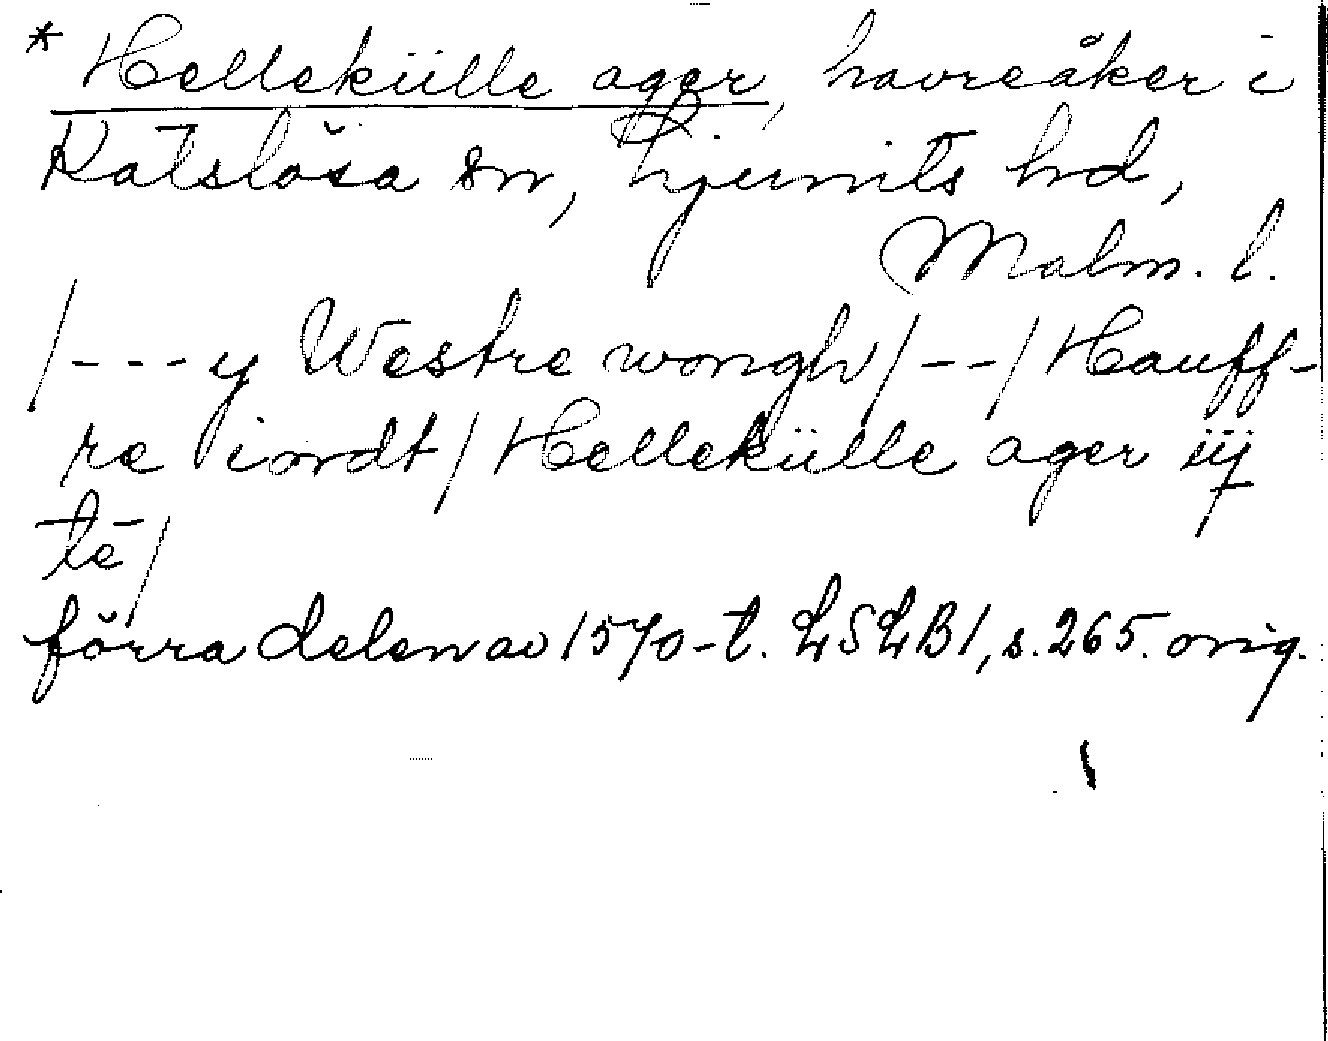 * Hellekülle ager, havreåker i
Katslösa sn, Ljunits hd,
Malm. l.
/---y Westre wongh/--/Hauff-
re iordt/Hellekülle ager iij
te/
förra delen av 1570-t. LSLB1, s.265. orig.